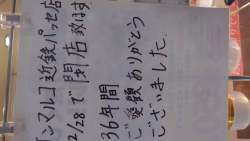 ンマルコ近鉄パッセ店
2/28で閉店致します
36年間
ご愛顧ありがとう
ございました